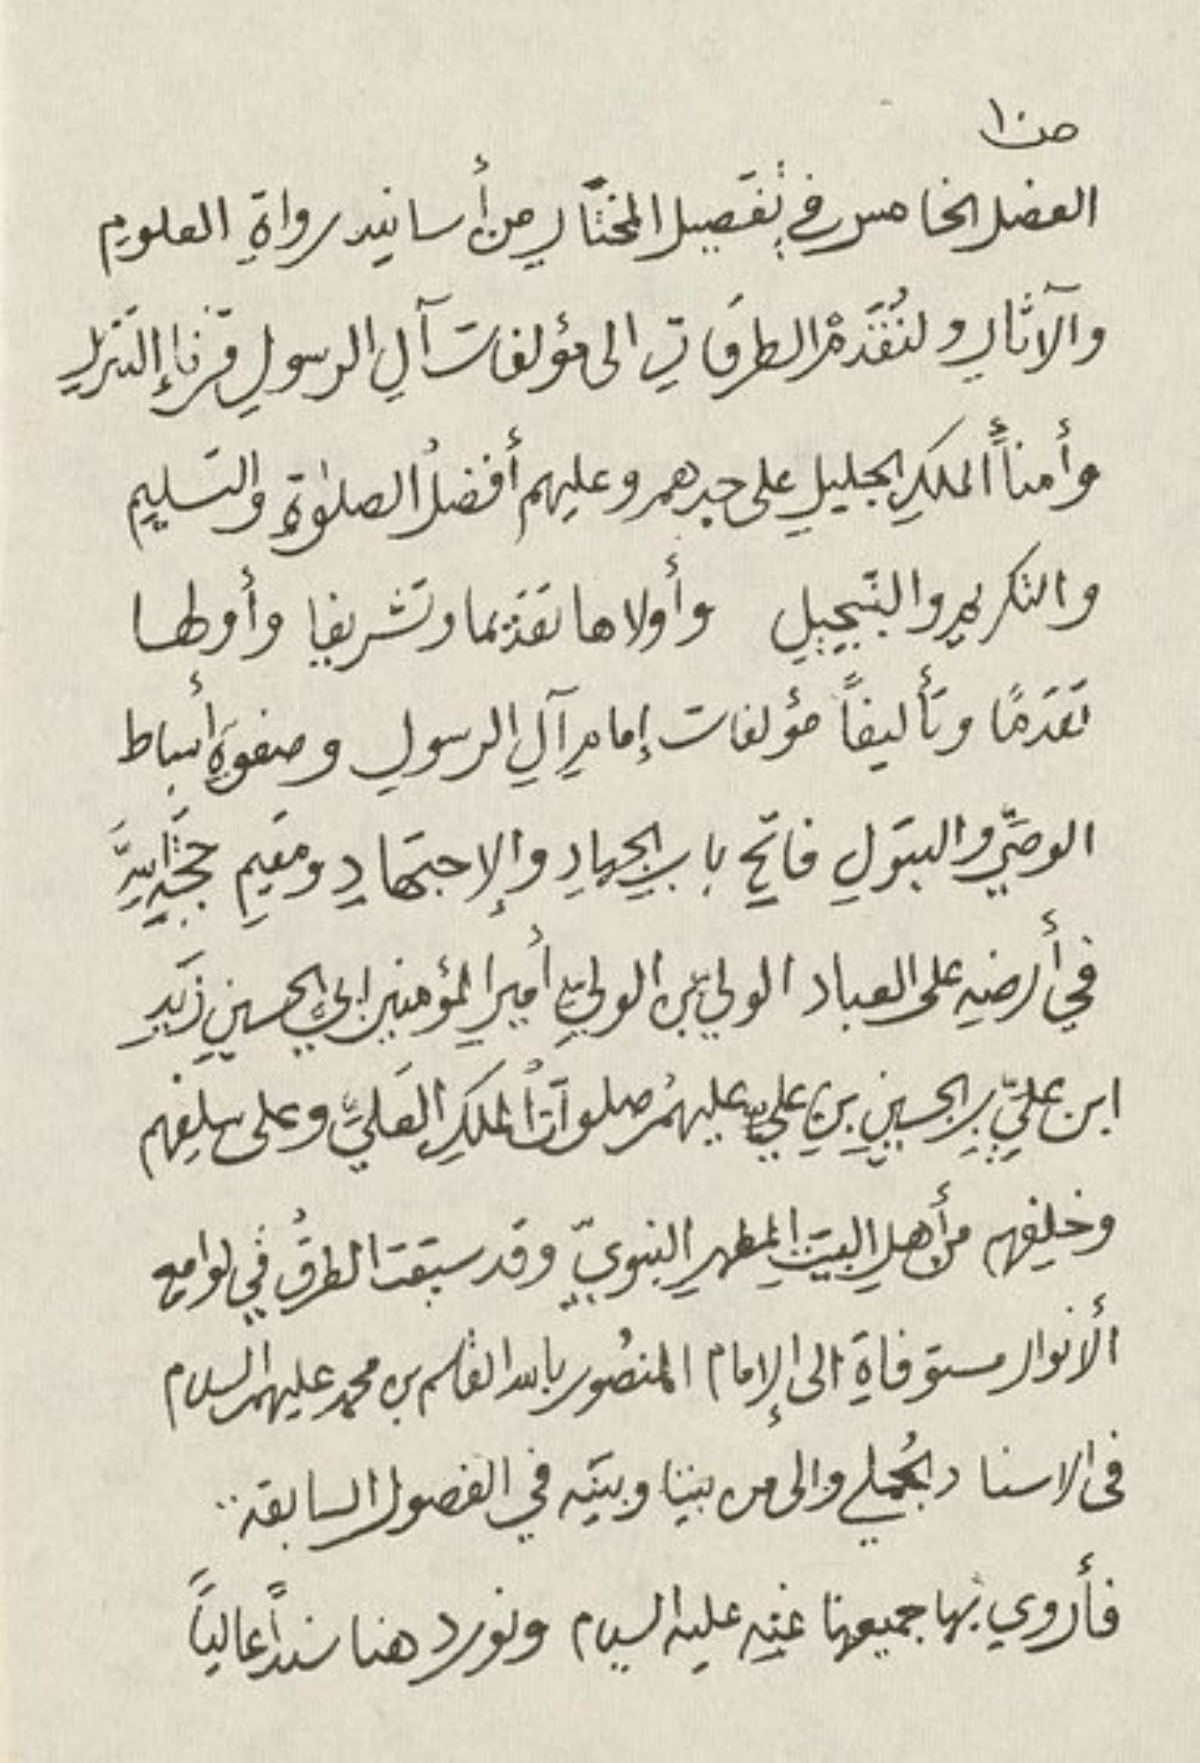 ص ١
الفصل الخامس في تفصيل المختار من أسانيد رواة العلوم
والآثار ولنقدم الطرقات الى مؤلفات آل الرسول قرناء التنزيل
وأمناء الملك الجليل على جدهم وعليهم أفضل الصلوٰة والتسليم
والتكريم والتبجيل وأولاها تقديما وتشريفا وأولها
تقدمًا وتأليفاً مؤلفات إمام آل الرسول وصفوة أسباط
الوصيّ والبتول فاتح باب الجهاد والإجتهاد ومقيم حجة الله
في أرضه على العباد الولي بن الولي أمير المؤمنين ابي الحسين زيد
ابن عليّ بن الحسين بن علي عليهم صلوات الملك العليّ وعلى سلفهم
وخلفهم من أهل البيت المطهر النبويّ وقد سبقت الطرق في لوامع
الأنوار مستوفاة الى الإمام المنصور بالله القاسم بن محمد عليهم السلام
في الاسناد الجُملي والى من بيننا وبينه في الفصول السابقة
فأروي بها جميعها عنه عليه السلام ونورد هنا سنداً عالياً